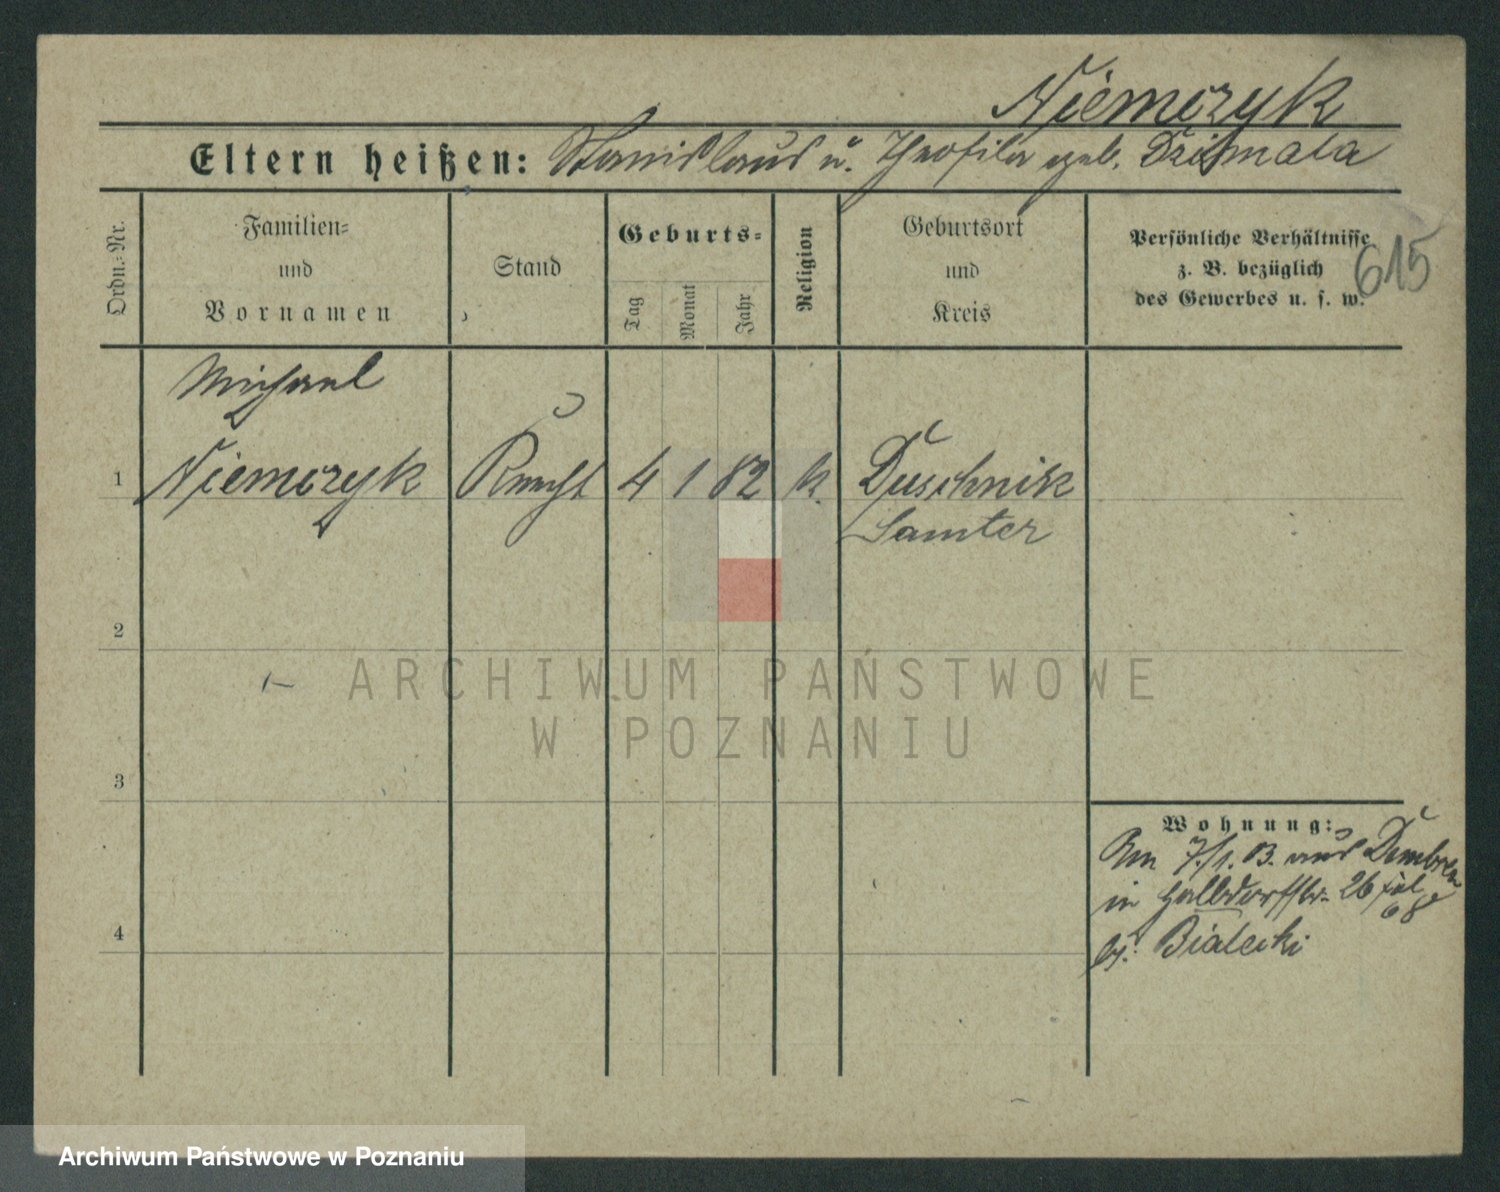 Niemczyk
Eltern heißen: Stanislaus u. Theofila geb. Dzimala
Ordn.=Nr.
Familien=
und
Vornamen
Stand
Geburts=
Tag
Monat
Jahr
Religion
Geburtsort
und
Kreis
Persönliche Verhältnisse
z. B. bezüglich
des Gewerbes u. s. w.
615
Michael
1 Niemczyk Knecht 4 1 82 k. Duschnik
Samter
2
ARCHIWUM PAŃSTWOWE
W POZNANIU
3
Wohnung:
Am 7./1. 13. aus
in 26
68
by. Bialecki
4
Archiwum Państwowe w Poznaniu